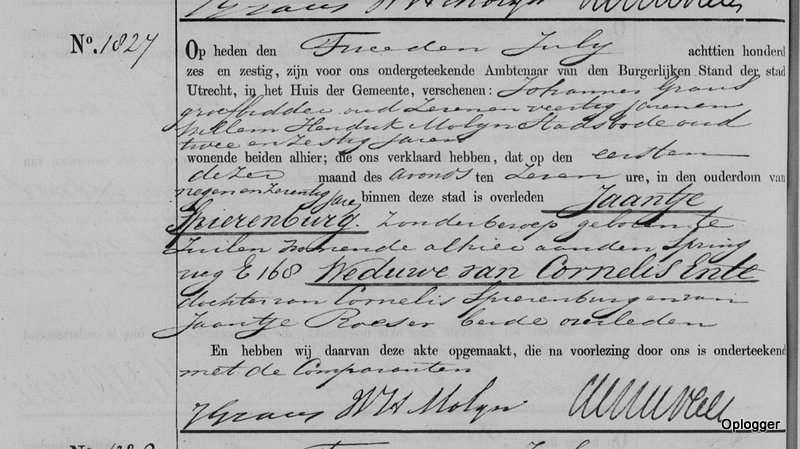 J Graus WH Molyn
No. 1827
Op heden den Tweeden July achttien honderd
zes en zestig, zijn voor ons ondergeteekende Ambtenaar van den Burgerlijken Stand der stad
Utrecht, in het Huis der Gemeente, verschenen: Johannes Graus
groefbidder oud Zeven en veertig jaren en
Willem Hendrik Molyn Stadsbode oud
twee en zestig jaren
wonende beiden alhier; die ons verklaard hebben, dat op den eersten
dezer maand des avonds ten Zeven ure, in den ouderdom van
negen en zeventig jaren binnen deze stad is overleden Jaantje
Spierenburg. Zonder beroep geboren te
Zuilen wonende alhier aan den Spring
weg E 168 Weduwe van Cornelis Ente
dochter van Cornelis Spierenburg en van
Jaantje Roeser beide overleden
En hebben wij daarvan deze akte opgemaakt, die na voorlezing door ons is onderteekend
met de Comparanten
J Graus WH Molyn
Oplogger